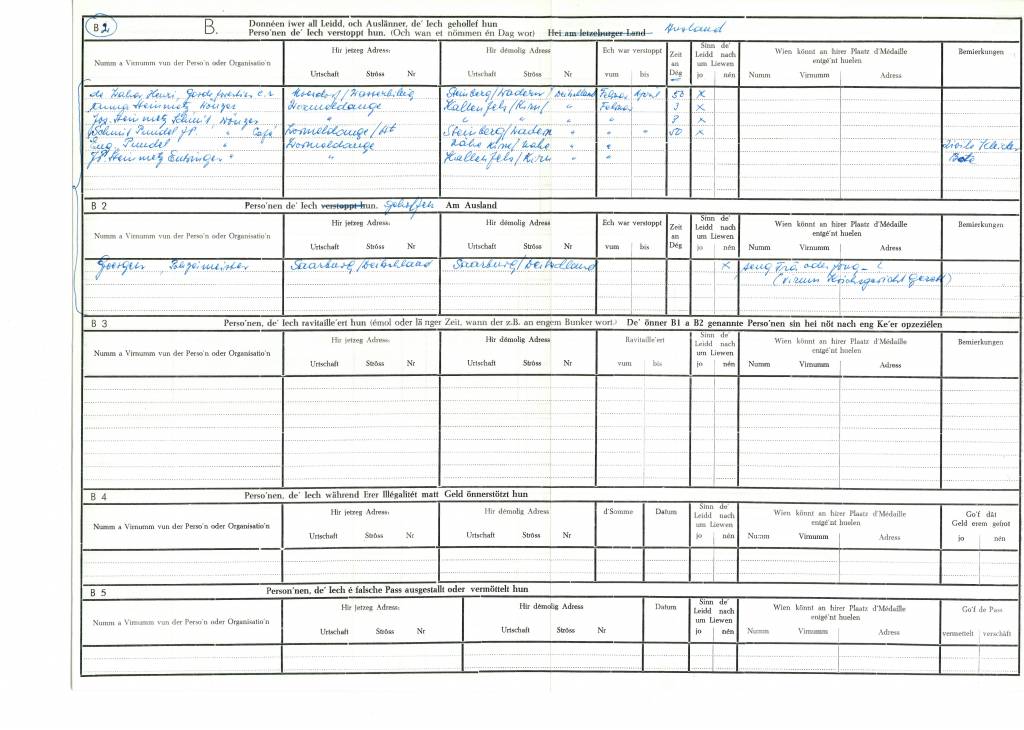 B 2 B. Donnéen iwer all Leidd, och Auslänner, de' Iech gehollef hun
Perso'nen de' Iech verstoppt hun. (Och wan et nömmen én Dag wor) Hei am letzeburger Land Ausland
Numm a Virnumm vun der Perso'n oder Organisatio'n Hir jetzeg Adress: Hir démolig Adress: Ech war verstoppt Zeit an Dég Sinn de' Leidd nach um Liewen Wien könnt an hirer Plaatz d'Médaille entgé'nt huelen Bemierkungen
Urtschaft Ströss Nr Urtschaft Ströss Nr vum bis jo nén Numm Virnumm Adress
Henri, Garde Deutschland Februar April 50 x
Steinmetz, Februar 3 x
Jos. Steinmetz Schmit, " " " " 8 x
Schmit Pundel J.P. " Café " " " 50 x
Eug. Pundel " " "
JP. Steinmetz " " " " Bote
B 2 Perso'nen de' Iech verstoppt hun. geholfen Am Ausland
Numm a Virnumm vun der Perso'n oder Organisatio'n Hir jetzeg Adress: Hir démolig Adress: Ech war verstoppt Zeit an Dég Sinn de' Leidd nach um Liewen Wien könnt an hirer Plaatz d'Médaille entgé'nt huelen Bemierkungen
Urtschaft Ströss Nr Urtschaft Ströss Nr vum bis jo nén Numm Virnumm Adress
Goergen, Saarburg/Deutschland Saarburg/Deutschland x seng Frà oder Jong - ?
B 3 Perso'nen, de' Iech ravitaille'ert hun (émol oder länger Zeit, wann der z.B. an engem Bunker wort.) De' önner B1 a B2 genannte Perso'nen sin hei nöt nach eng Ke'er opzeziélen
Numm a Virnumm vun der Perso'n oder Organisatio'n Hir jetzeg Adress: Hir démolig Adress: Ravitaille'ert Sinn de' Leidd nach um Liewen Wien könnt an hirer Plaatz d'Médaille entgé'nt huelen Bemierkungen
Urtschaft Ströss Nr Urtschaft Ströss Nr vum bis jo nén Numm Virnumm Adress
B 4 Perso'nen, de' Iech während Erer Illégalitét matt Geld önnerstötzt hun
Numm a Virnumm vun der Perso'n oder Organisatio'n Hir jetzeg Adress: Hir démolig Adress: d'Somme Datum Sinn de' Leidd nach um Liewen Wien könnt an hirer Plaatz d'Médaille entgé'nt huelen Go'f dât Geld erem gefrot
Urtschaft Ströss Nr Urtschaft Ströss Nr jo nén Numm Virnumm Adress jo nén
B 5 Person'nen, de' Iech é falsche Pass ausgestallt oder vermöttelt hun
Numm a Virnumm vun der Perso'n oder Organisatio'n Hir jetzeg Adress: Hir démolig Adress: Datum Sinn de' Leidd nach um Liewen Wien könnt an hirer Plaatz d'Médaille entgé'nt huelen Go'f de Pass
Urtschaft Ströss Nr Urtschaft Ströss Nr jo nén Numm Virnumm Adress vermettelt verschâft